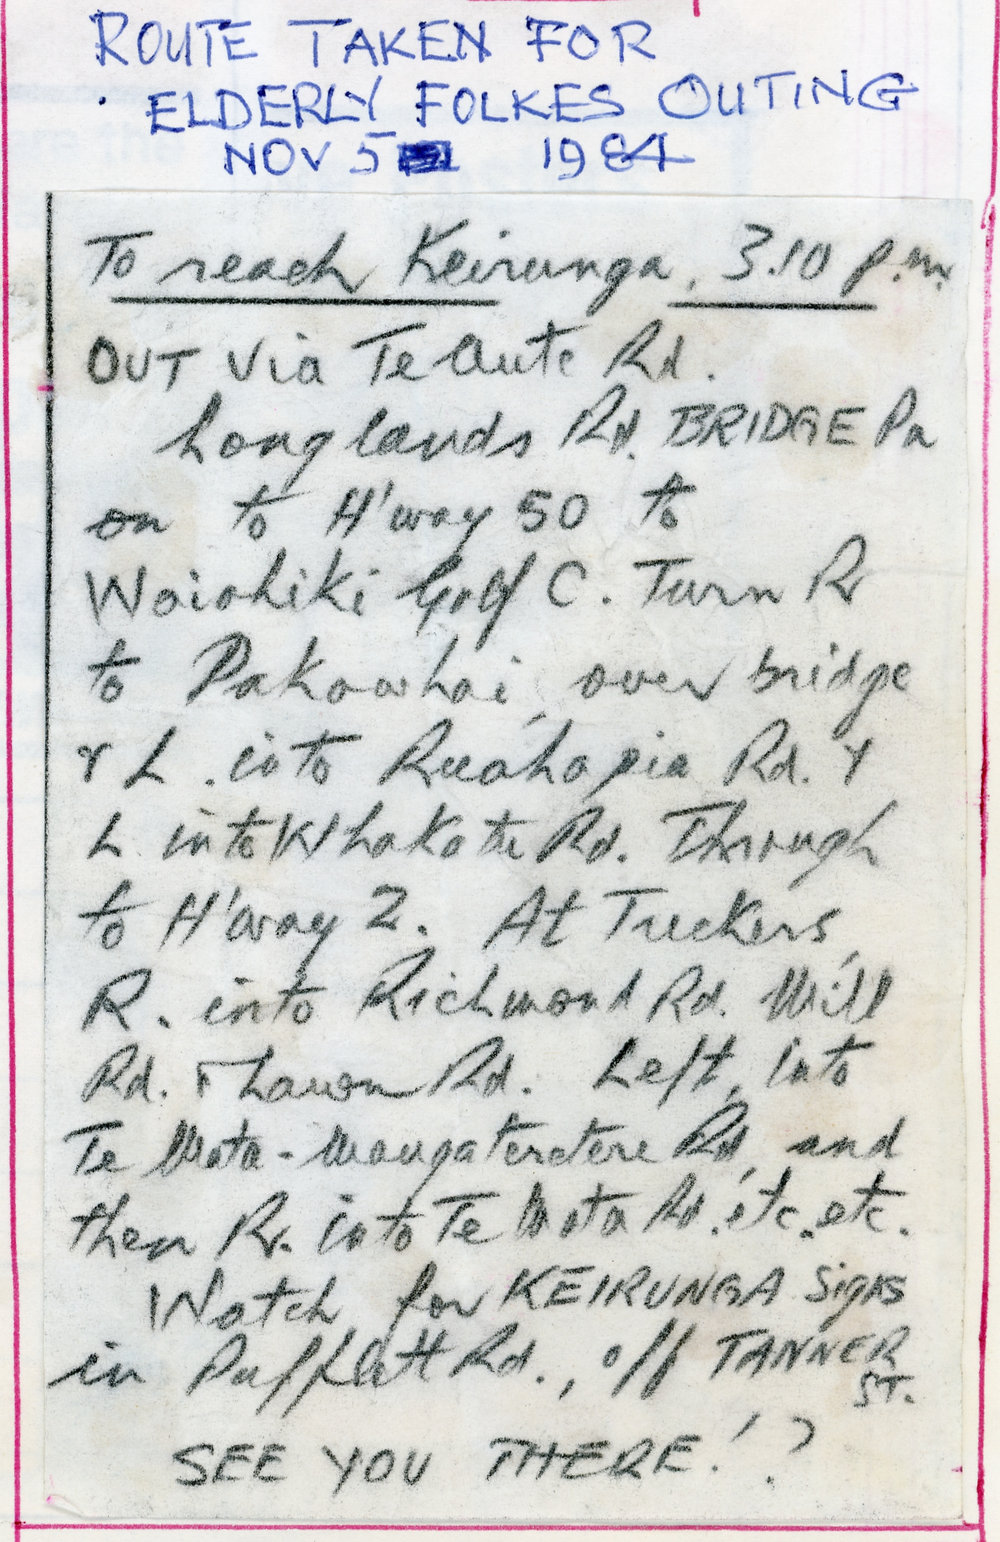 ROUTE TAKEN FOR
ELDERLY FOLKES OUTING
NOV 5 1984
To reach Keirunga, 3.10 p.m.
OUT Via Te Aute Rd.
Longlands Rd. BRIDGE Pa
on to H'way 50 to
Waiohiki Golf C. Turn R
to Pakowhai, over bridge
& L. into Ruahapia Rd. &
L into Whakatu Rd. Through
to H'way 2. At Tuckers,
R. into Richmond Rd. Mill
Rd. & Lawn Rd. Left, into
Te Mata - Mangateretere Rd, and
then R. into Te Mata Rd. etc. etc.
Watch for KEIRUNGA Signs
in Pufflett Rd., off TANNER
ST.
SEE YOU THERE! ?